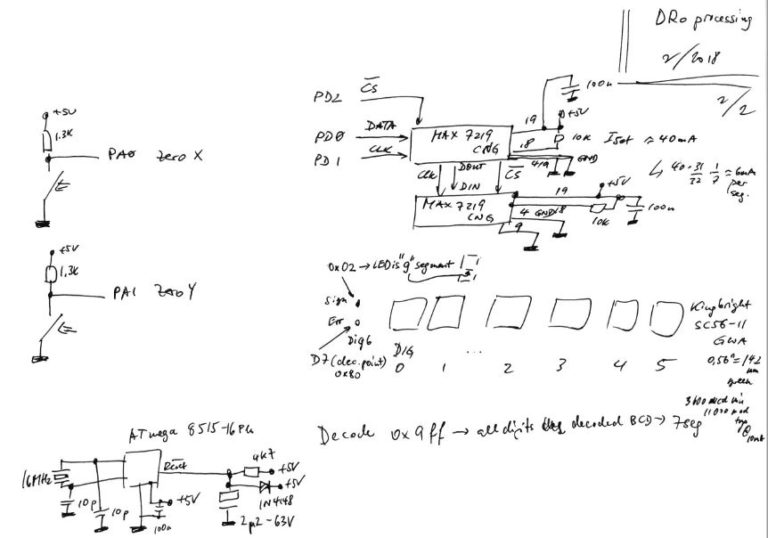 DRO processing
2/2018
2/2
+5V
1.3K
PA0 zero X
+5V
1.3K
PA1 zero Y
PD2 CS
PD0 DATA
PD1 CLK
MAX 7219
CNG
19
100n
+5V
18
10K
Iset ≈ 40mA
4,9
GND
↳ 40·31/32 1/7 = 6mA
per
seg.
CLK
DOUT
DIN
CS
MAX 7219
CNG
19
+5V
4 GND 18
9
10K
100n
0x02 → LED is "g" segment
Sign
Err
Dig 6
D7 (dec. point)
0x80
DIG
0 1 ... 2 3 4 5
Kingbright
SC56-11
GWA
0,56" = 14,2
mm
green
Decode 0x9 ff → all digits decoded BCD → 7seg
ATmega 8515-16PU
16MHz
10p
10p
Reset
100n
+5V
4K7
+5V
+5V
1N4148
2µ2-63V